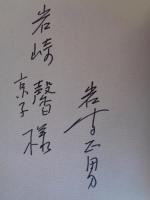 岩崎 馨
京子 様
岩崎正男